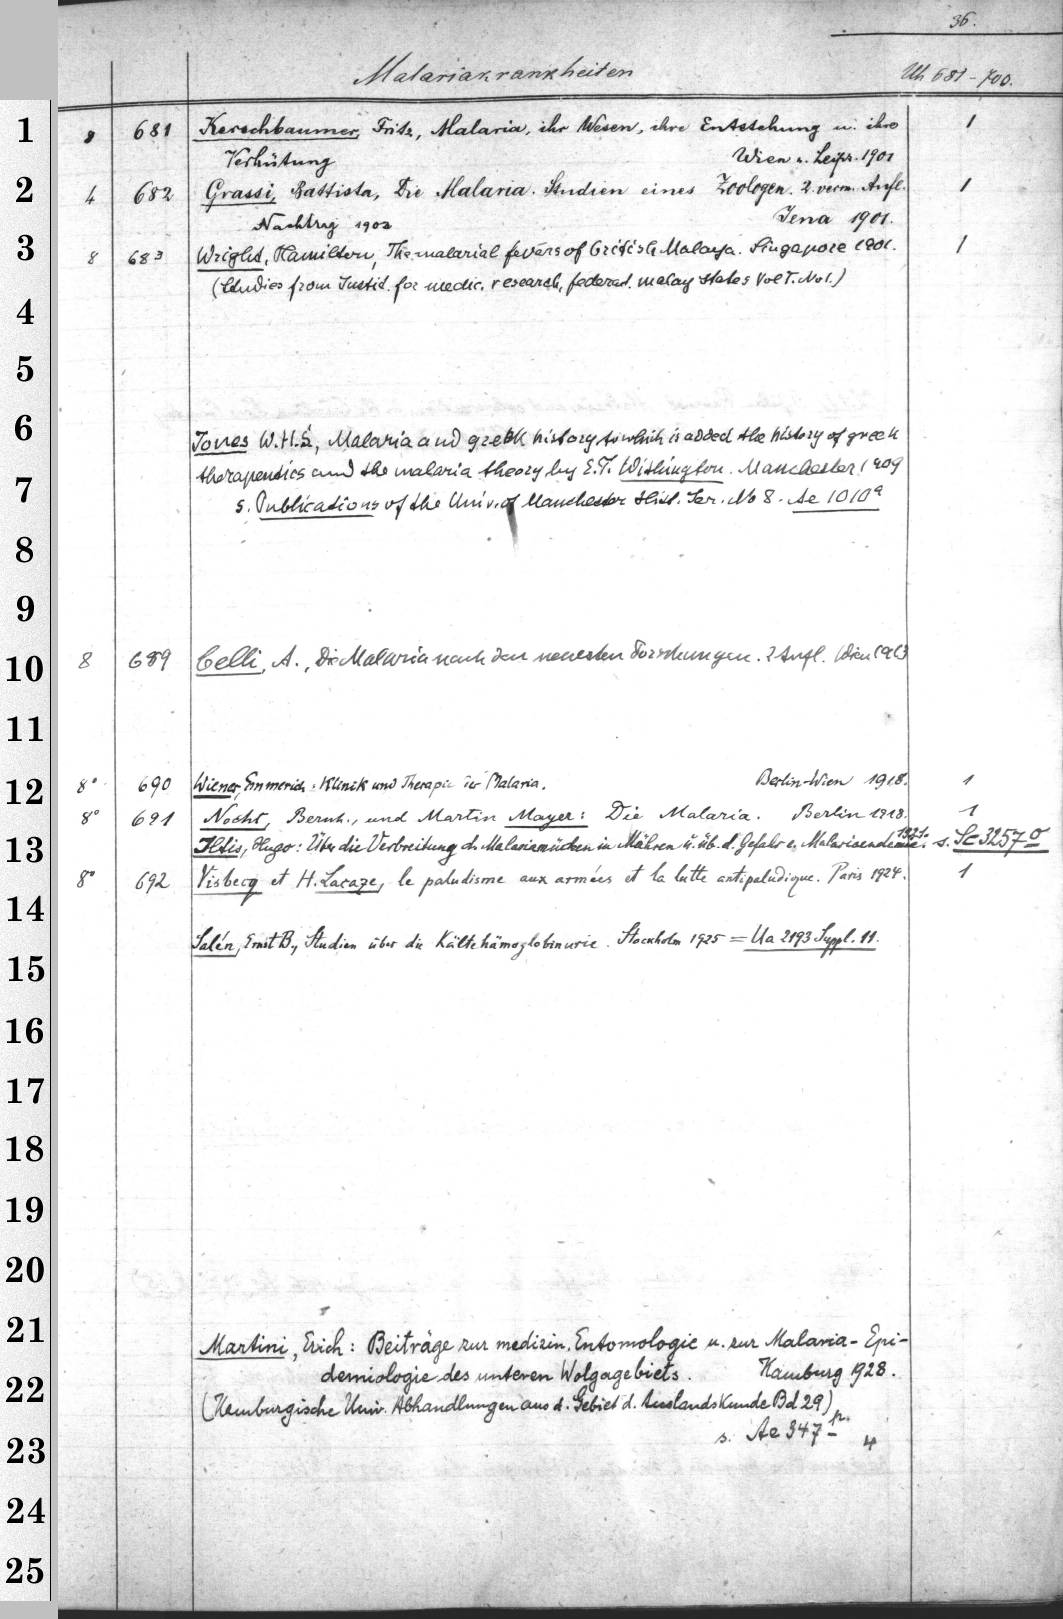 36.
Malariakrankheiten Uh 681-700.
1 8 681 Kerschbaumer, Fritz, Malaria, ihr Wesen, ihre Entstehung u. ihre 1
Verhütung Wien u. Leipz. 1901
2 4 682 Grassi, Battista, Die Malaria. Studien eines Zoologen. 2. verm. Aufl. 1
Nachtrag 1903 Jena 1901.
3 8 683 Wright, Hamilton, The malarial fevers of British Malaya. Singapore 1901. 1
(Studies from Instit. for medic. research, federat. malay states Vol I. No 1.)
4
5
6 Jones W.H.S., Malaria and greek history to which is added the history of greek
therapeutics and the malaria theory by E.T. Withington. Manchester 1909
7 s. Publications of the Univ. of Manchester Hist. Ser. No 8. Ae 1010a
8
9
10 8 689 Celli, A., Die Malaria nach den neuesten Forschungen. 2 Aufl. Wien 1913
11
12 8° 690 Wiener, Emmerich: Klinik und Therapie der Malaria. Berlin-Wien 1918. 1
8° 691 Nocht, Bernh., und Martin Mayer: Die Malaria. Berlin 1918. 1
1921.
13 Iltis, Hugo: Über die Verbreitung d. Malariamücken in Mähren u. üb. d. Gefahr e. Malariaendemie. s. Sc 3257 o
8° 692 Visbecq et H. Lacaze, le paludisme aux armées et la lutte antipaludique. Paris 1924. 1
14
Salén, Ernst B., Studien über die Kältehämoglobinurie. Stockholm 1925 = Ua 2193 Suppl. 11.
15
16
17
18
19
20
21 Martini, Erich: Beiträge zur medizin. Entomologie u. zur Malaria-Epi-
22 demiologie des unteren Wolgagebiets. Hamburg 1928.
(Hamburgische Univ. Abhandlungen aus d. Gebiet d. Auslandskunde Bd 29)
23 s. Ae 347 p. 4
24
25